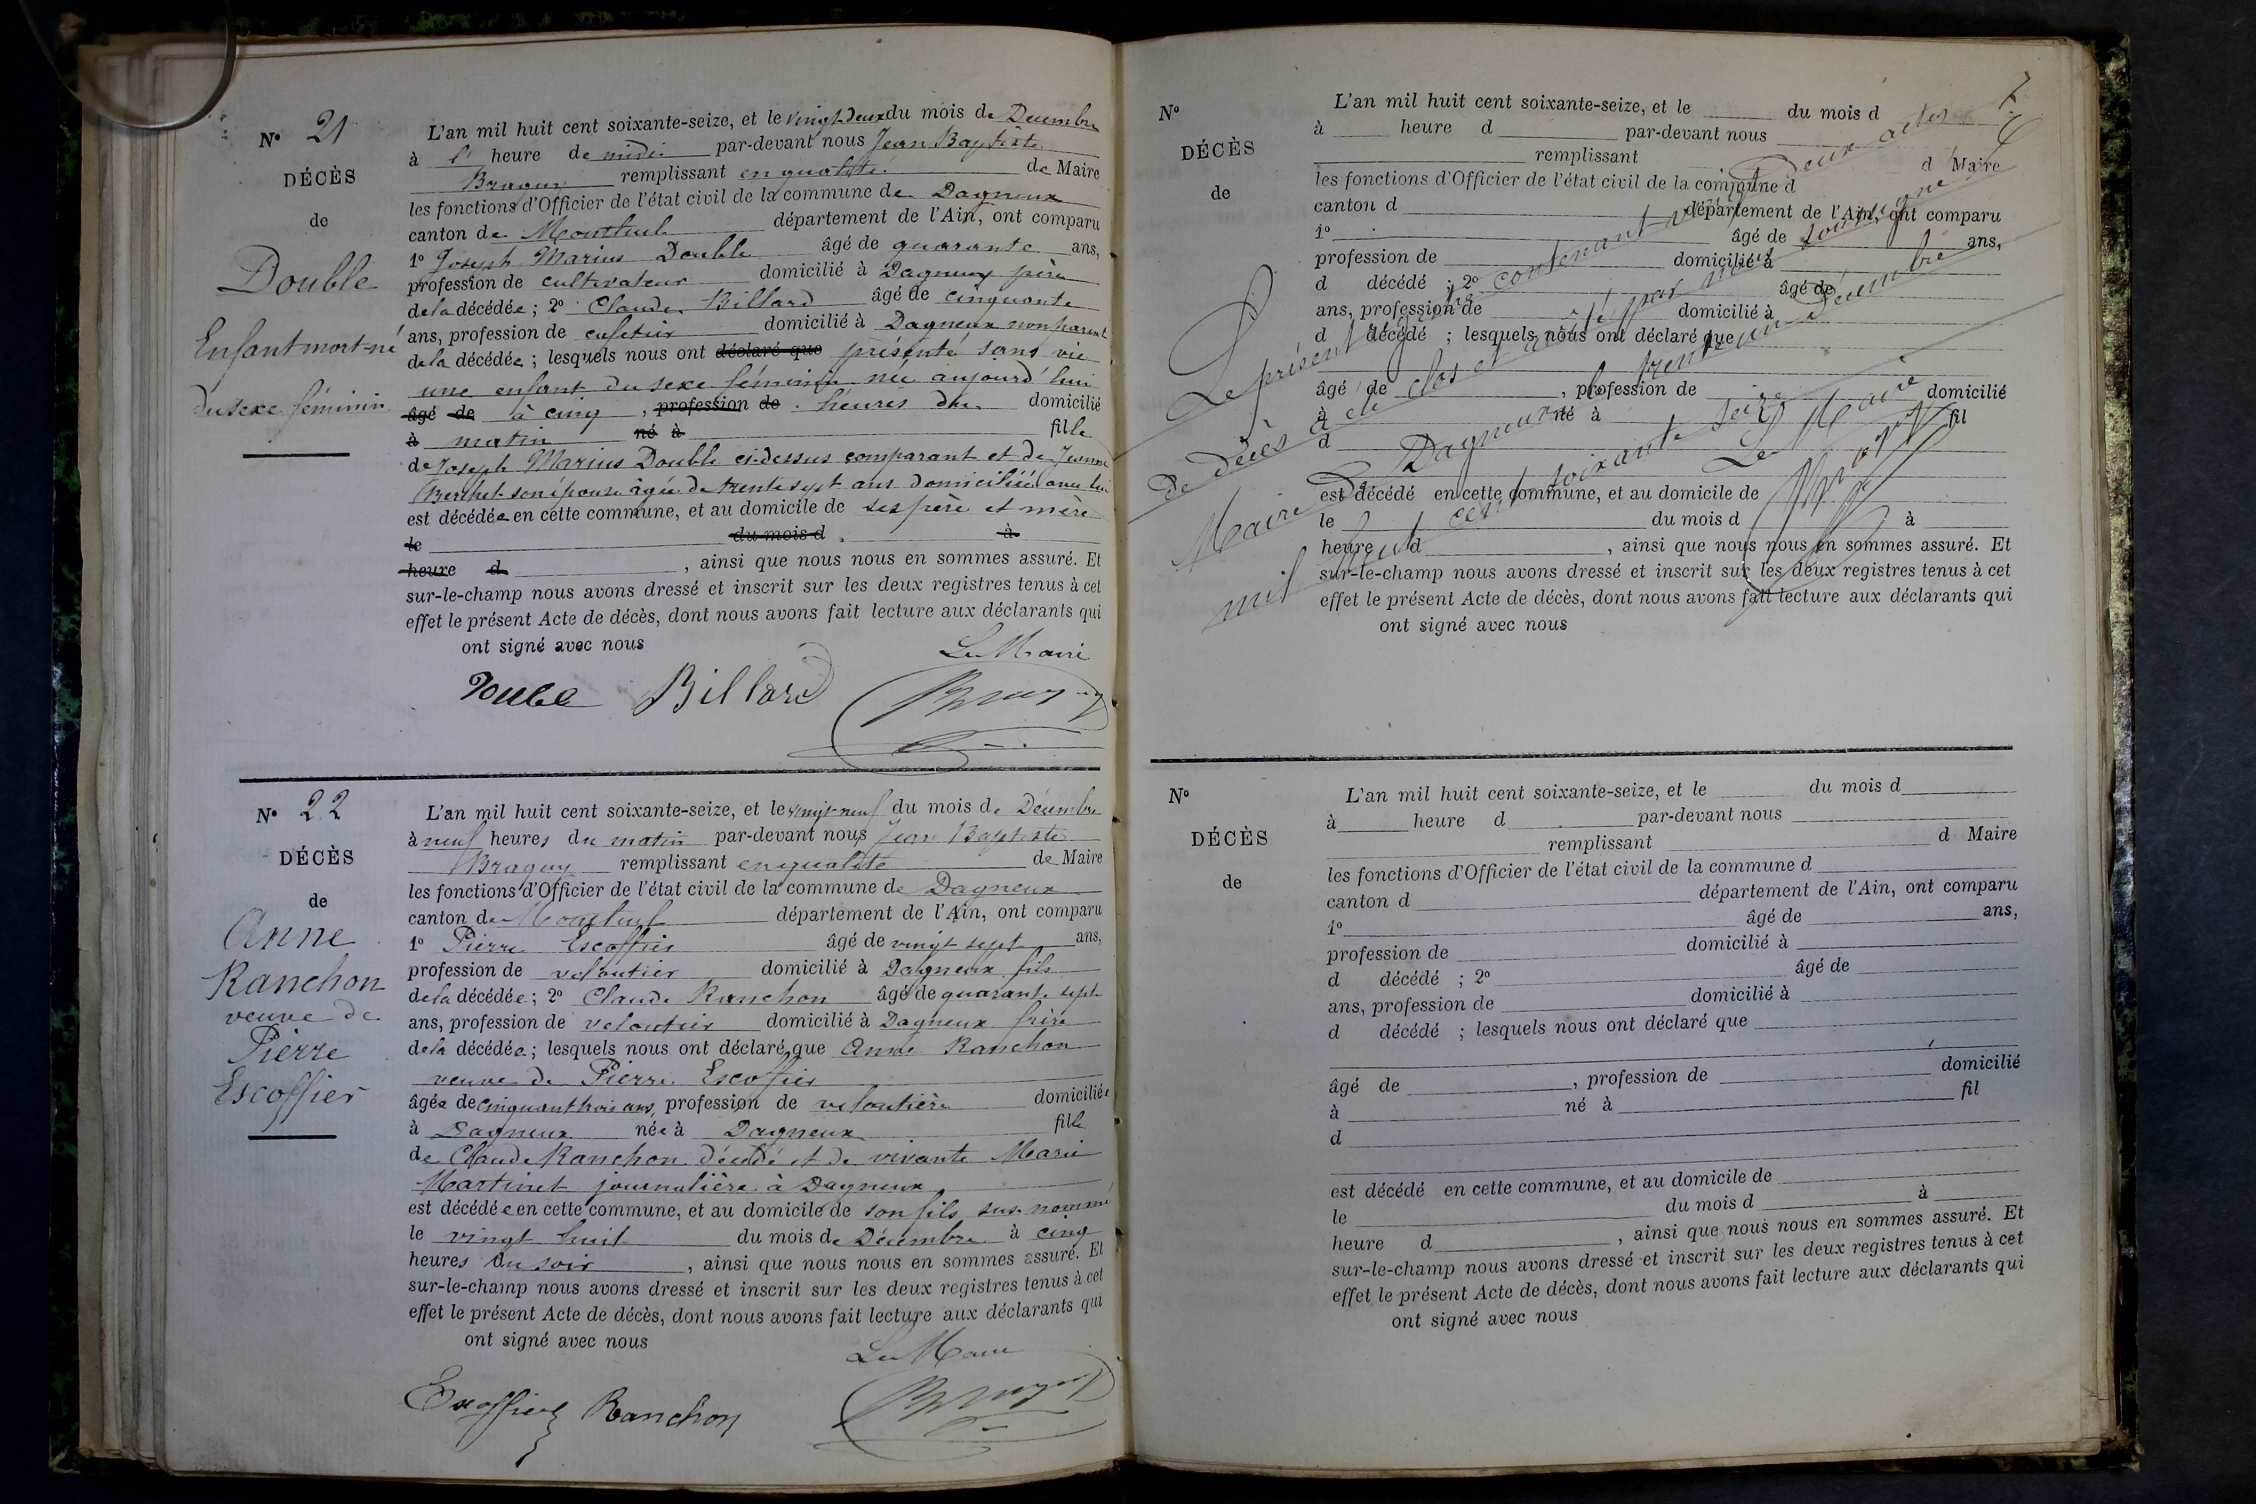 N° 21
DÉCÈS
de
Double
Enfant mort-né
du sexe féminin
L'an mil huit cent soixante-seize, et le vingt-deux du mois de Décembre
à l' heure de midi par-devant nous Jean Baptiste
remplissant en qualité de Maire
les fonctions d'Officier de l'état civil de la commune de Dagneux
canton de Montluel département de l'Ain, ont comparu
1° Joseph Marius Double âgé de quarante ans,
profession de cultivateur domicilié à Dagneux père
de la décédée ; 2° Claude Billard âgé de cinquante
ans, profession de cafetier domicilié à Dagneux non parent
de la décédée ; lesquels nous ont déclaré que présenté sans vie
une enfant du sexe féminin née aujourd'hui
âgé de à cinq , profession de heures du domicilié
à matin né à fille
de Joseph Marius Double ci-dessus comparant et de Jeanne
Berchet son épouse âgée de trente sept ans domiciliée avec lui
est décédée en cette commune, et au domicile de ses père et mère
le du mois d à
heure d , ainsi que nous nous en sommes assuré. Et
sur-le-champ nous avons dressé et inscrit sur les deux registres tenus à cet
effet le présent Acte de décès, dont nous avons fait lecture aux déclarants qui
ont signé avec nous
Le Maire
Double Billard
N° 22
DÉCÈS
de
Anne
Ranchon
veuve de
Pierre
Escoffier
L'an mil huit cent soixante-seize, et le vingt-neuf du mois de Décembre
à neuf heures du matin par-devant nous Jean Baptiste
remplissant en qualité de Maire
les fonctions d'Officier de l'état civil de la commune de Dagneux
canton de Montluel département de l'Ain, ont comparu
1° Pierre Escoffier âgé de vingt sept ans,
profession de veloutier domicilié à Dagneux fils
de la décédée ; 2° Claude Ranchon âgé de quarante sept
ans, profession de veloutier domicilié à Dagneux frère
de la décédée ; lesquels nous ont déclaré que Anne Ranchon
veuve de Pierre Escoffier
âgée de cinquante trois ans, profession de veloutière domiciliée
à Dagneux née à Dagneux fille
de Claude Ranchon décédé et de vivante Marie
Martinet journalière à Dagneux
est décédée en cette commune, et au domicile de son fils sus nommé
le vingt huit du mois de Décembre à cinq
heures du soir , ainsi que nous nous en sommes assuré. Et
sur-le-champ nous avons dressé et inscrit sur les deux registres tenus à cet
effet le présent Acte de décès, dont nous avons fait lecture aux déclarants qui
ont signé avec nous
Le Maire
Escoffier Ranchon
N°
DÉCÈS
de
L'an mil huit cent soixante-seize, et le du mois d
à heure d par-devant nous
remplissant d Maire
les fonctions d'Officier de l'état civil de la commune d
canton d département de l'Ain, ont comparu
1° âgé de ans,
profession de domicilié à
d décédé ; 2° âgé de
ans, profession de domicilié à
d décédé ; lesquels nous ont déclaré que
âgé de , profession de domicilié
à né à fil
d
est décédé en cette commune, et au domicile de
le du mois d à
heure d , ainsi que nous nous en sommes assuré. Et
sur-le-champ nous avons dressé et inscrit sur les deux registres tenus à cet
effet le présent Acte de décès, dont nous avons fait lecture aux déclarants qui
ont signé avec nous
Le présent registre contenant vingt deux actes
de décès a été clos et arrêté par nous soussigné
Maire de Dagneux le trente un Décembre
mil huit cent soixante seize
Le Maire
N°
DÉCÈS
de
L'an mil huit cent soixante-seize, et le du mois d
à heure d par-devant nous
remplissant d Maire
les fonctions d'Officier de l'état civil de la commune d
canton d département de l'Ain, ont comparu
1° âgé de ans,
profession de domicilié à
d décédé ; 2° âgé de
ans, profession de domicilié à
d décédé ; lesquels nous ont déclaré que
âgé de , profession de domicilié
à né à fil
d
est décédé en cette commune, et au domicile de
le du mois d à
heure d , ainsi que nous nous en sommes assuré. Et
sur-le-champ nous avons dressé et inscrit sur les deux registres tenus à cet
effet le présent Acte de décès, dont nous avons fait lecture aux déclarants qui
ont signé avec nous